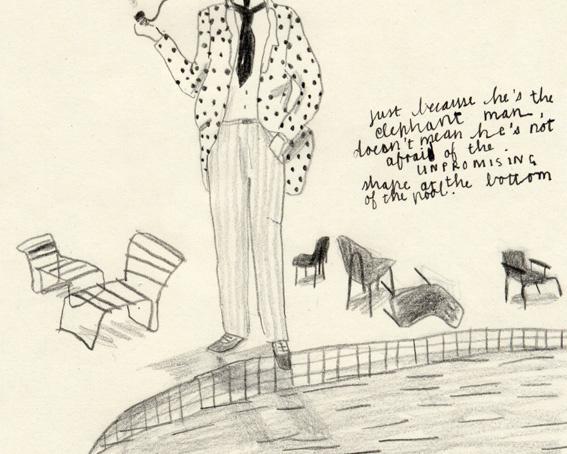 just because he's the
elephant man,
doesn't mean he's not
afraid of the
UNPROMISING
shape at the bottom
of the pool.